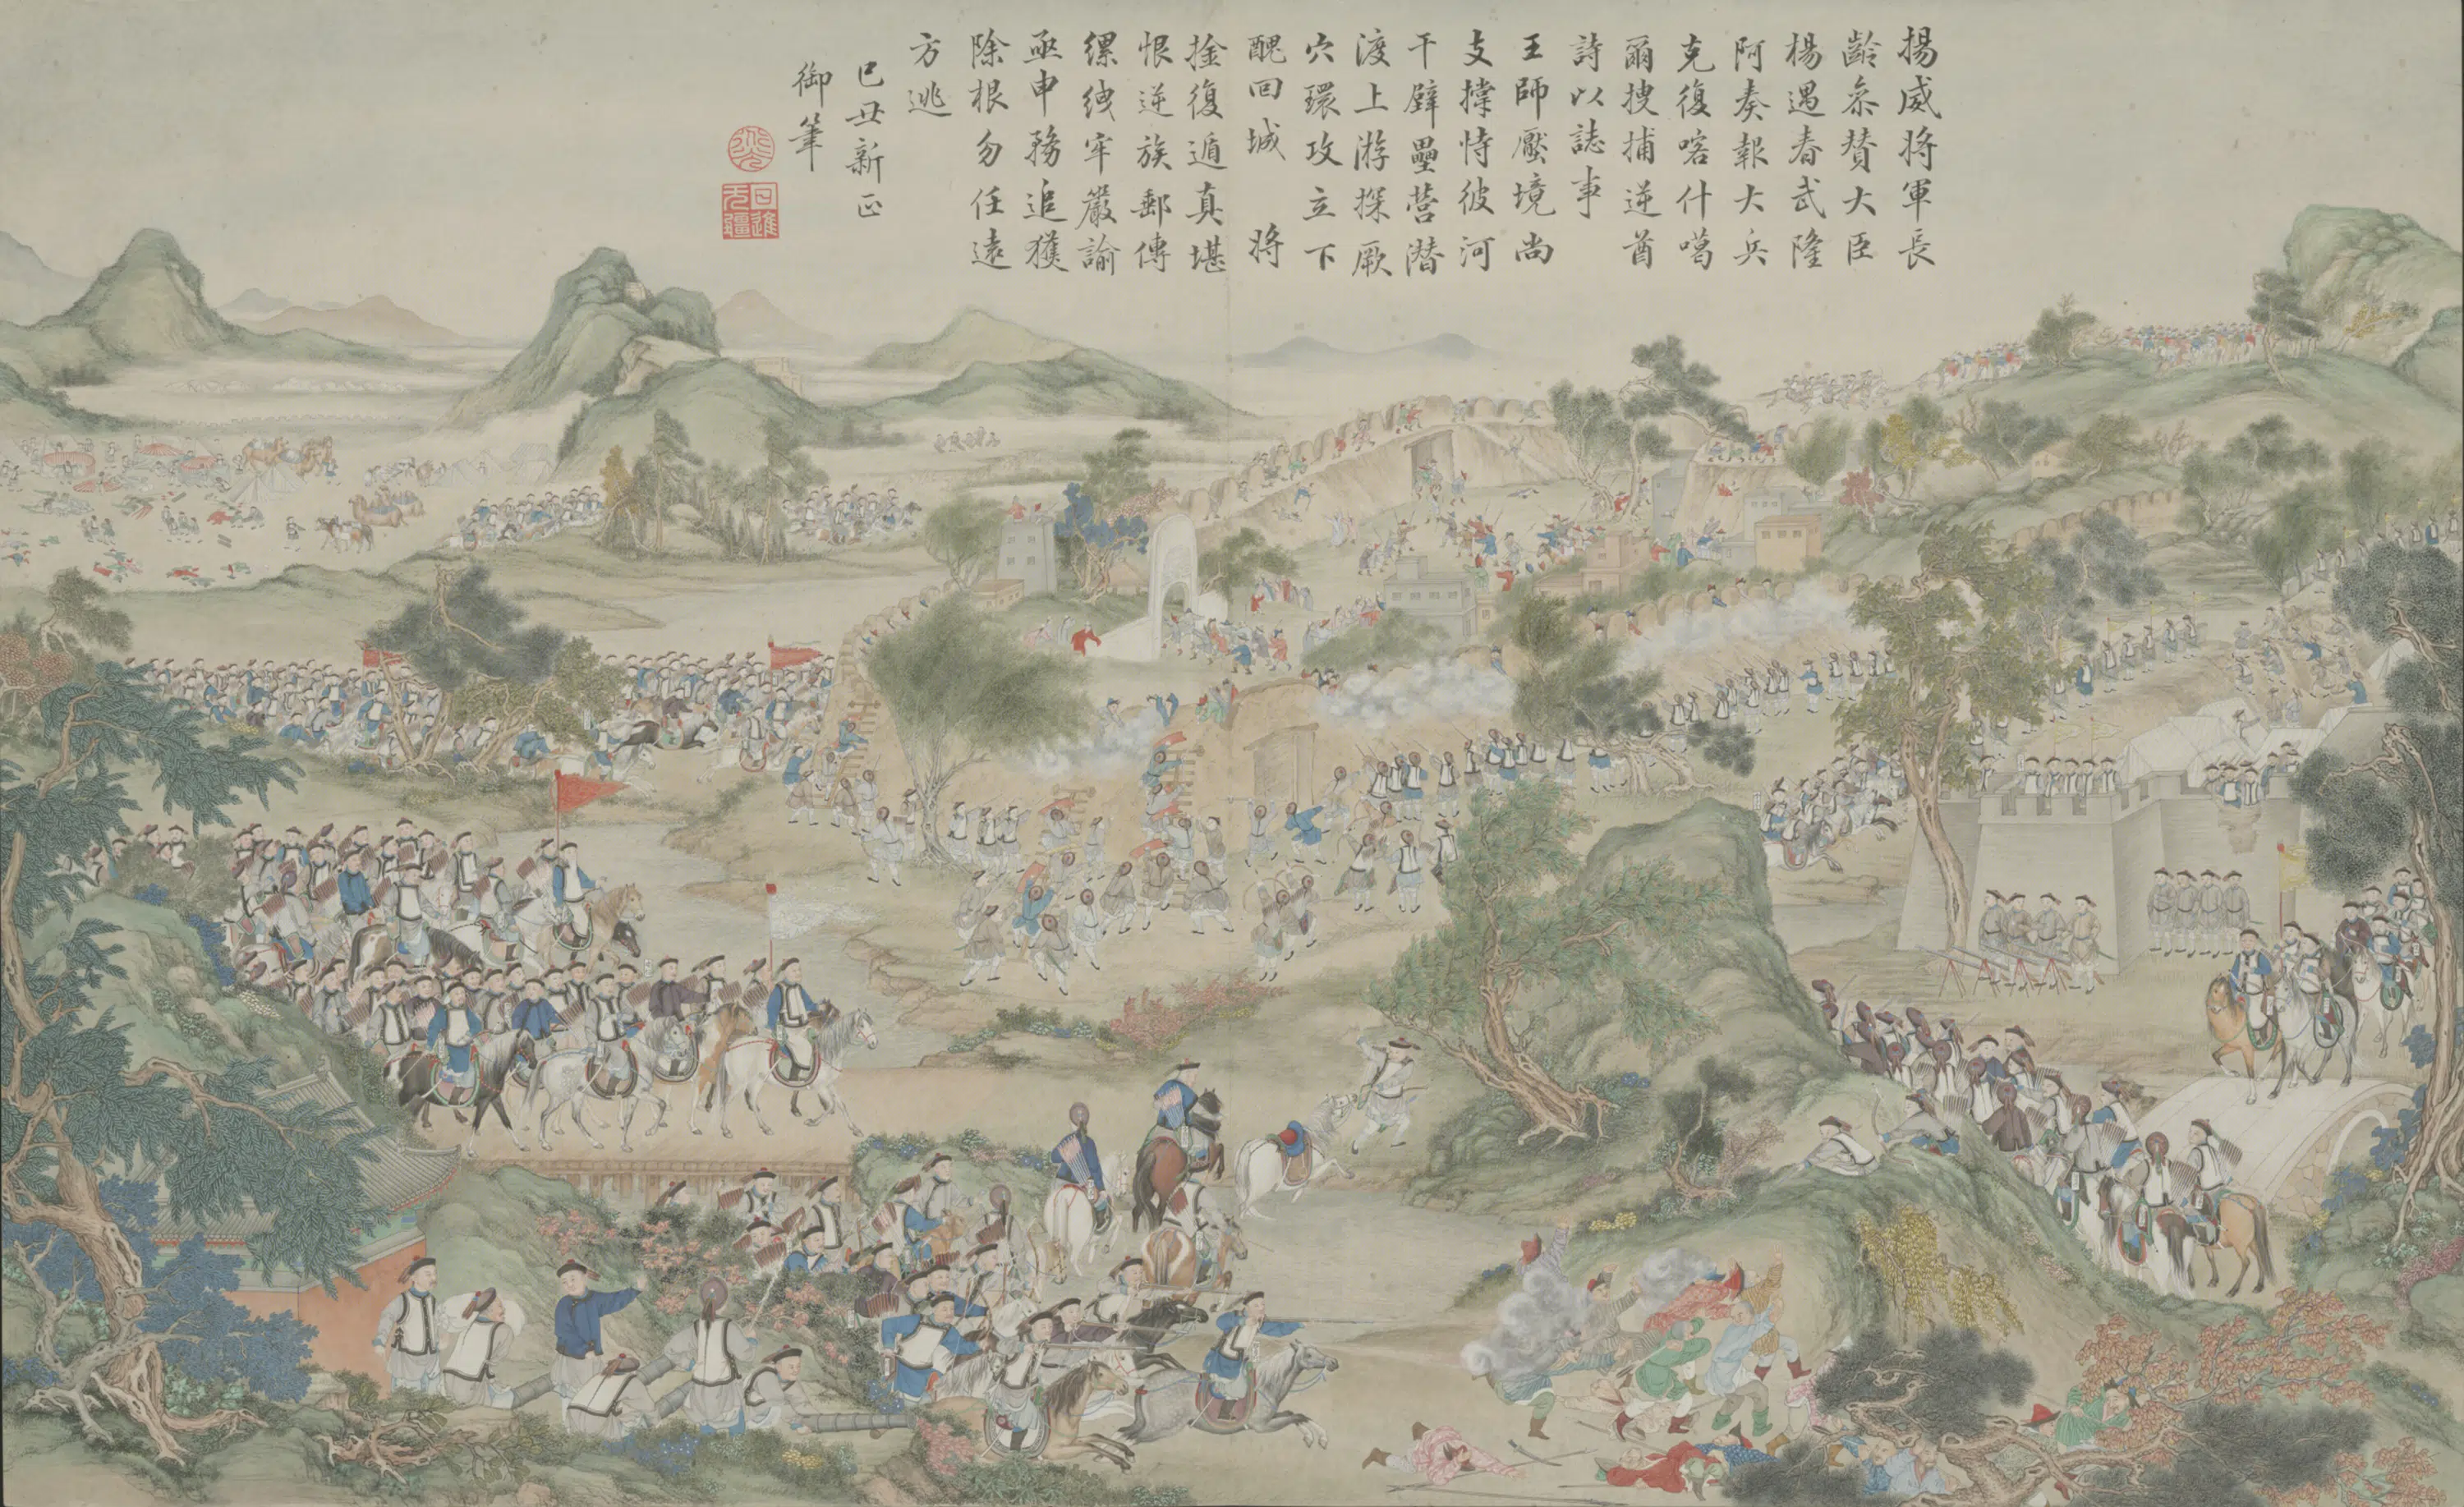 揚威將軍長
齡叅贊大臣
楊遇春武隆
阿奏報大兵
克復喀什噶
爾搜捕逆酋
詩以誌事
王師壓境尚
支撐恃彼河
干壁壘營潜
渡上游探厥
穴環攻立下
醜回城 將
擒復遁真堪
恨逆族郵傳
縲絏牢嚴諭
亟申務追獲
除根勿任遠
方逃
己丑新正
御筆